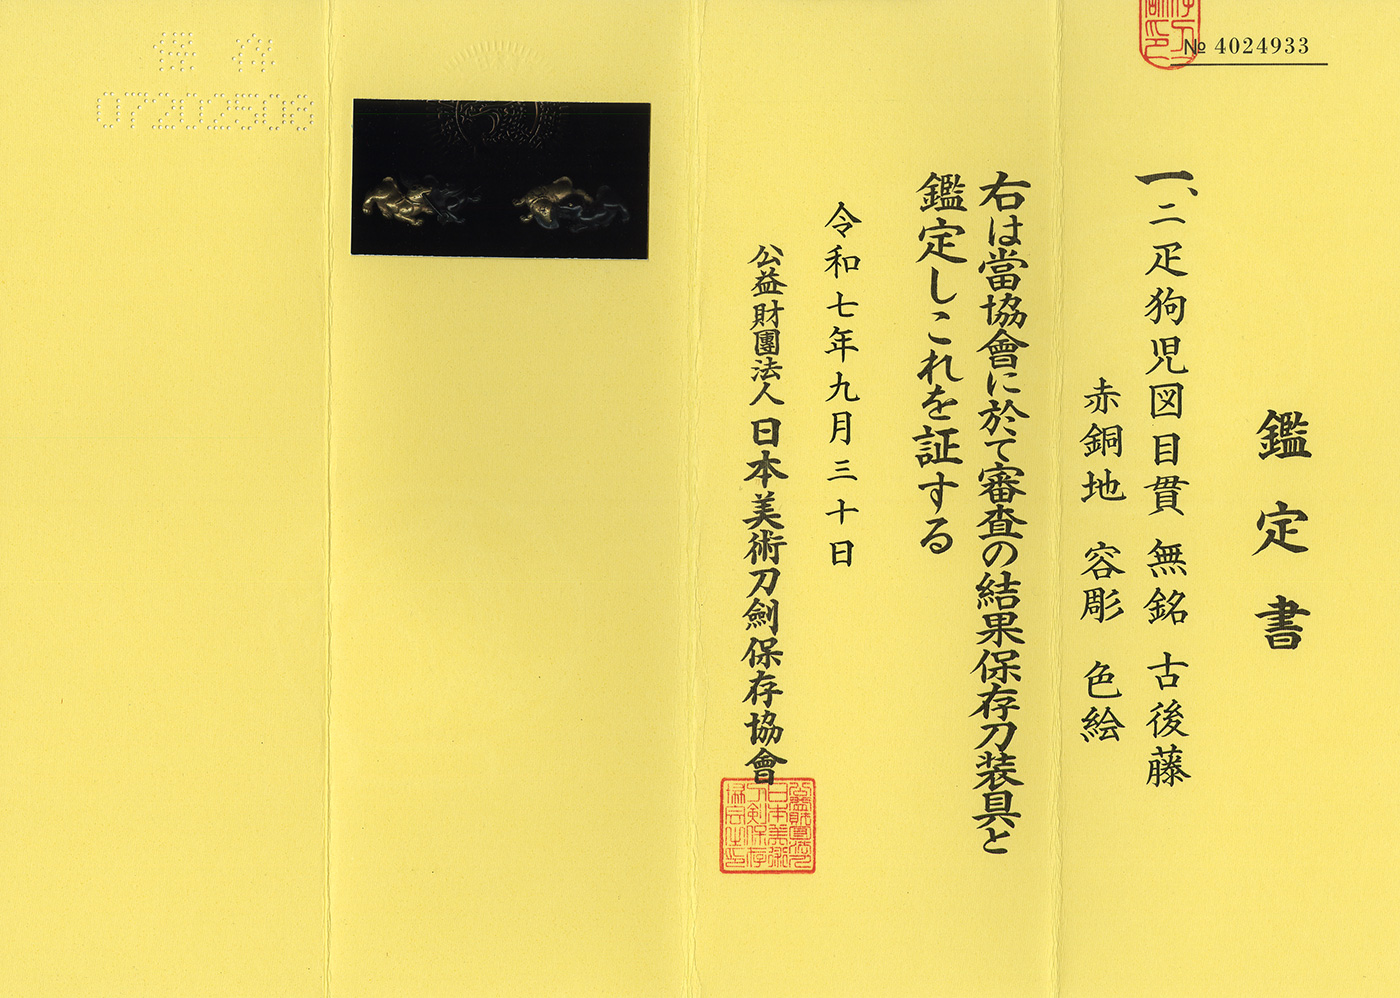 № 4024933
鑑定書
一、二疋狗児図目貫 無銘 古後藤
赤銅地 容彫 色絵
右は當協會に於て審査の結果保存刀装具と
鑑定しこれを証する
令和七年九月三十日
公益財團法人 日本美術刀劍保存協會
保存
07202508